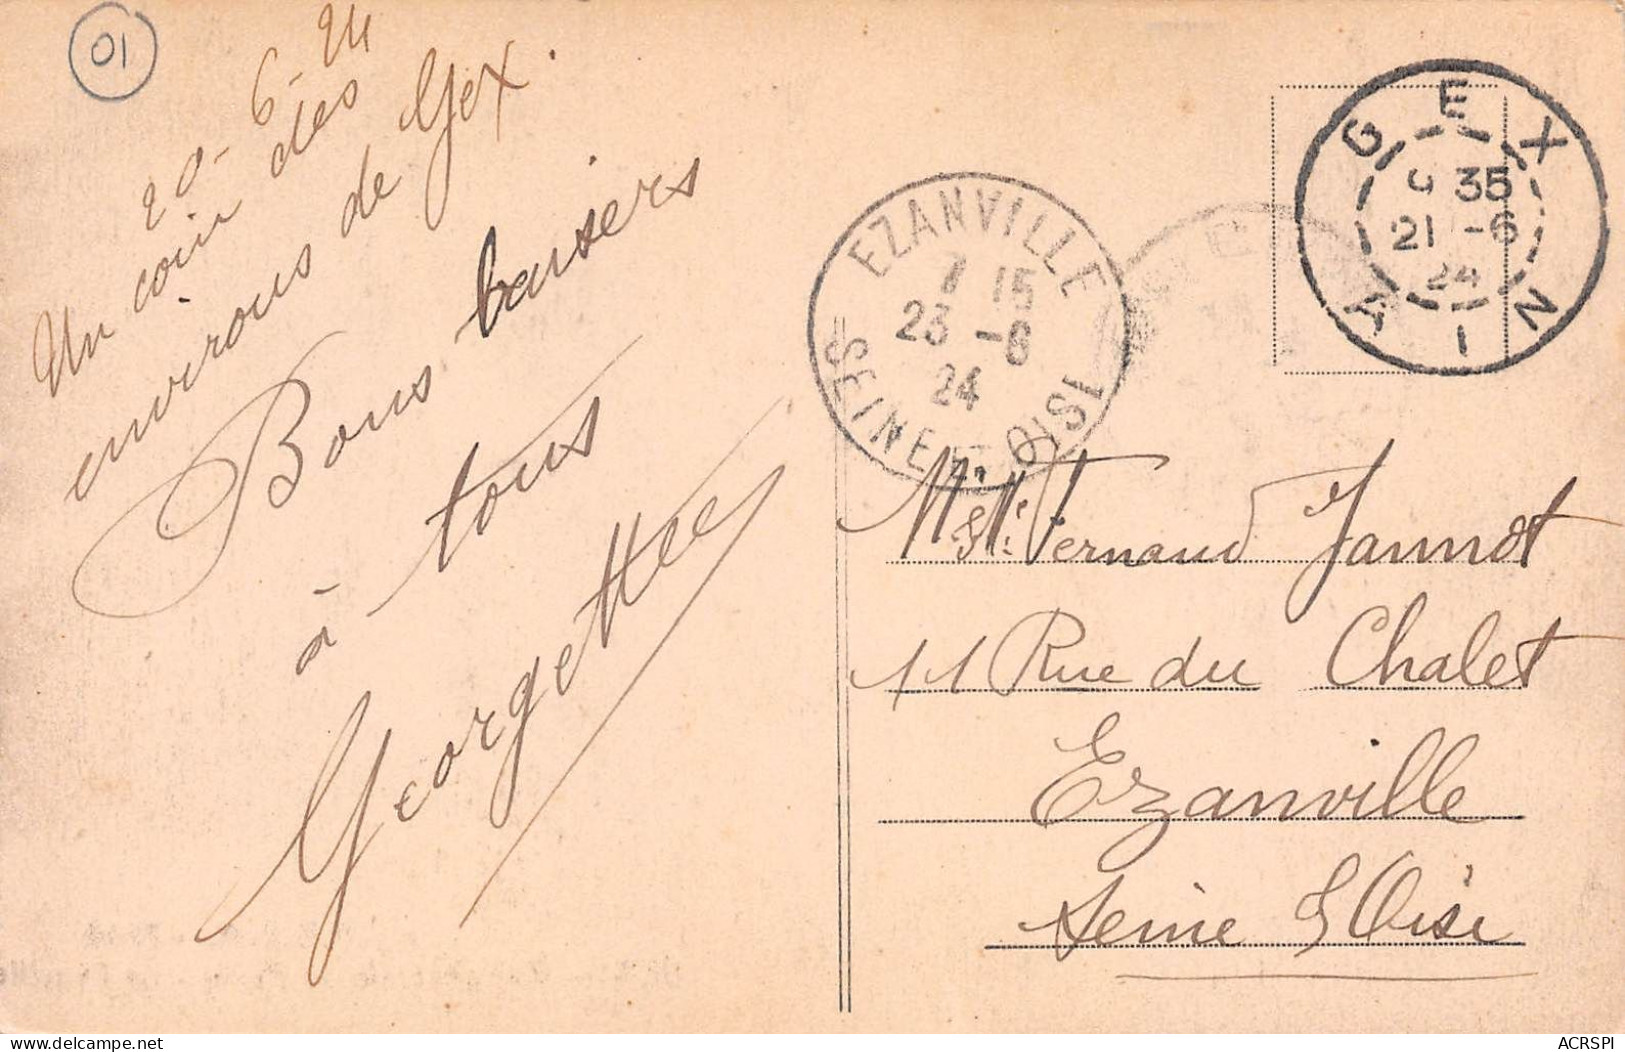 01
20-6-24
Un coin des
environs de Gex.
Bons baisers
à tous
Georgette
EZANVILLE
15
23 -6
24
SEINE-ET-OISE
GEX
35
21 -6
24
AIN
Mr & Me Fernand Jannot
11 Rue du Chalet
Ezanville
Seine & Oise
delcampe.net
ACRSPI